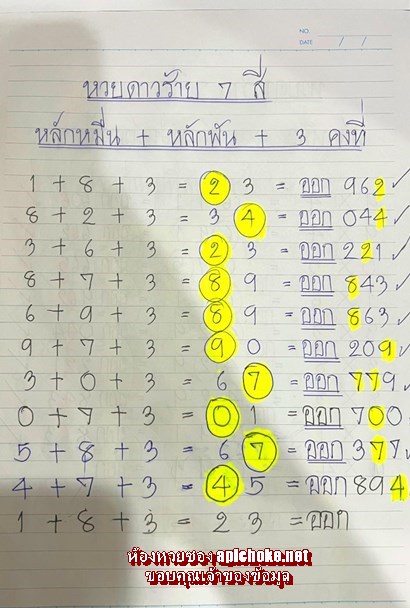 NO.
DATE / /
หวยดาวร้าย 7 สี
หลักหมื่น + หลักพัน + 3 คงที่
1 + 8 + 3 = 2 3 = ออก 962 ✓
8 + 2 + 3 = 3 4 = ออก 044 ✓
3 + 6 + 3 = 2 3 = ออก 221 ✓
8 + 7 + 3 = 8 9 = ออก 843 ✓
6 + 9 + 3 = 8 9 = ออก 863 ✓
9 + 7 + 3 = 9 0 = ออก 209 ✓
3 + 0 + 3 = 6 7 = ออก 779 ✓
0 + 7 + 3 = 0 1 = ออก 700 ✓
5 + 8 + 3 = 6 7 = ออก 377 ✓
4 + 7 + 3 = 4 5 = ออก 894
1 + 8 + 3 = 2 3 = ออก
ห้องหวยซอง aplchoke.net
ขอบคุณเจ้าของข้อมูล